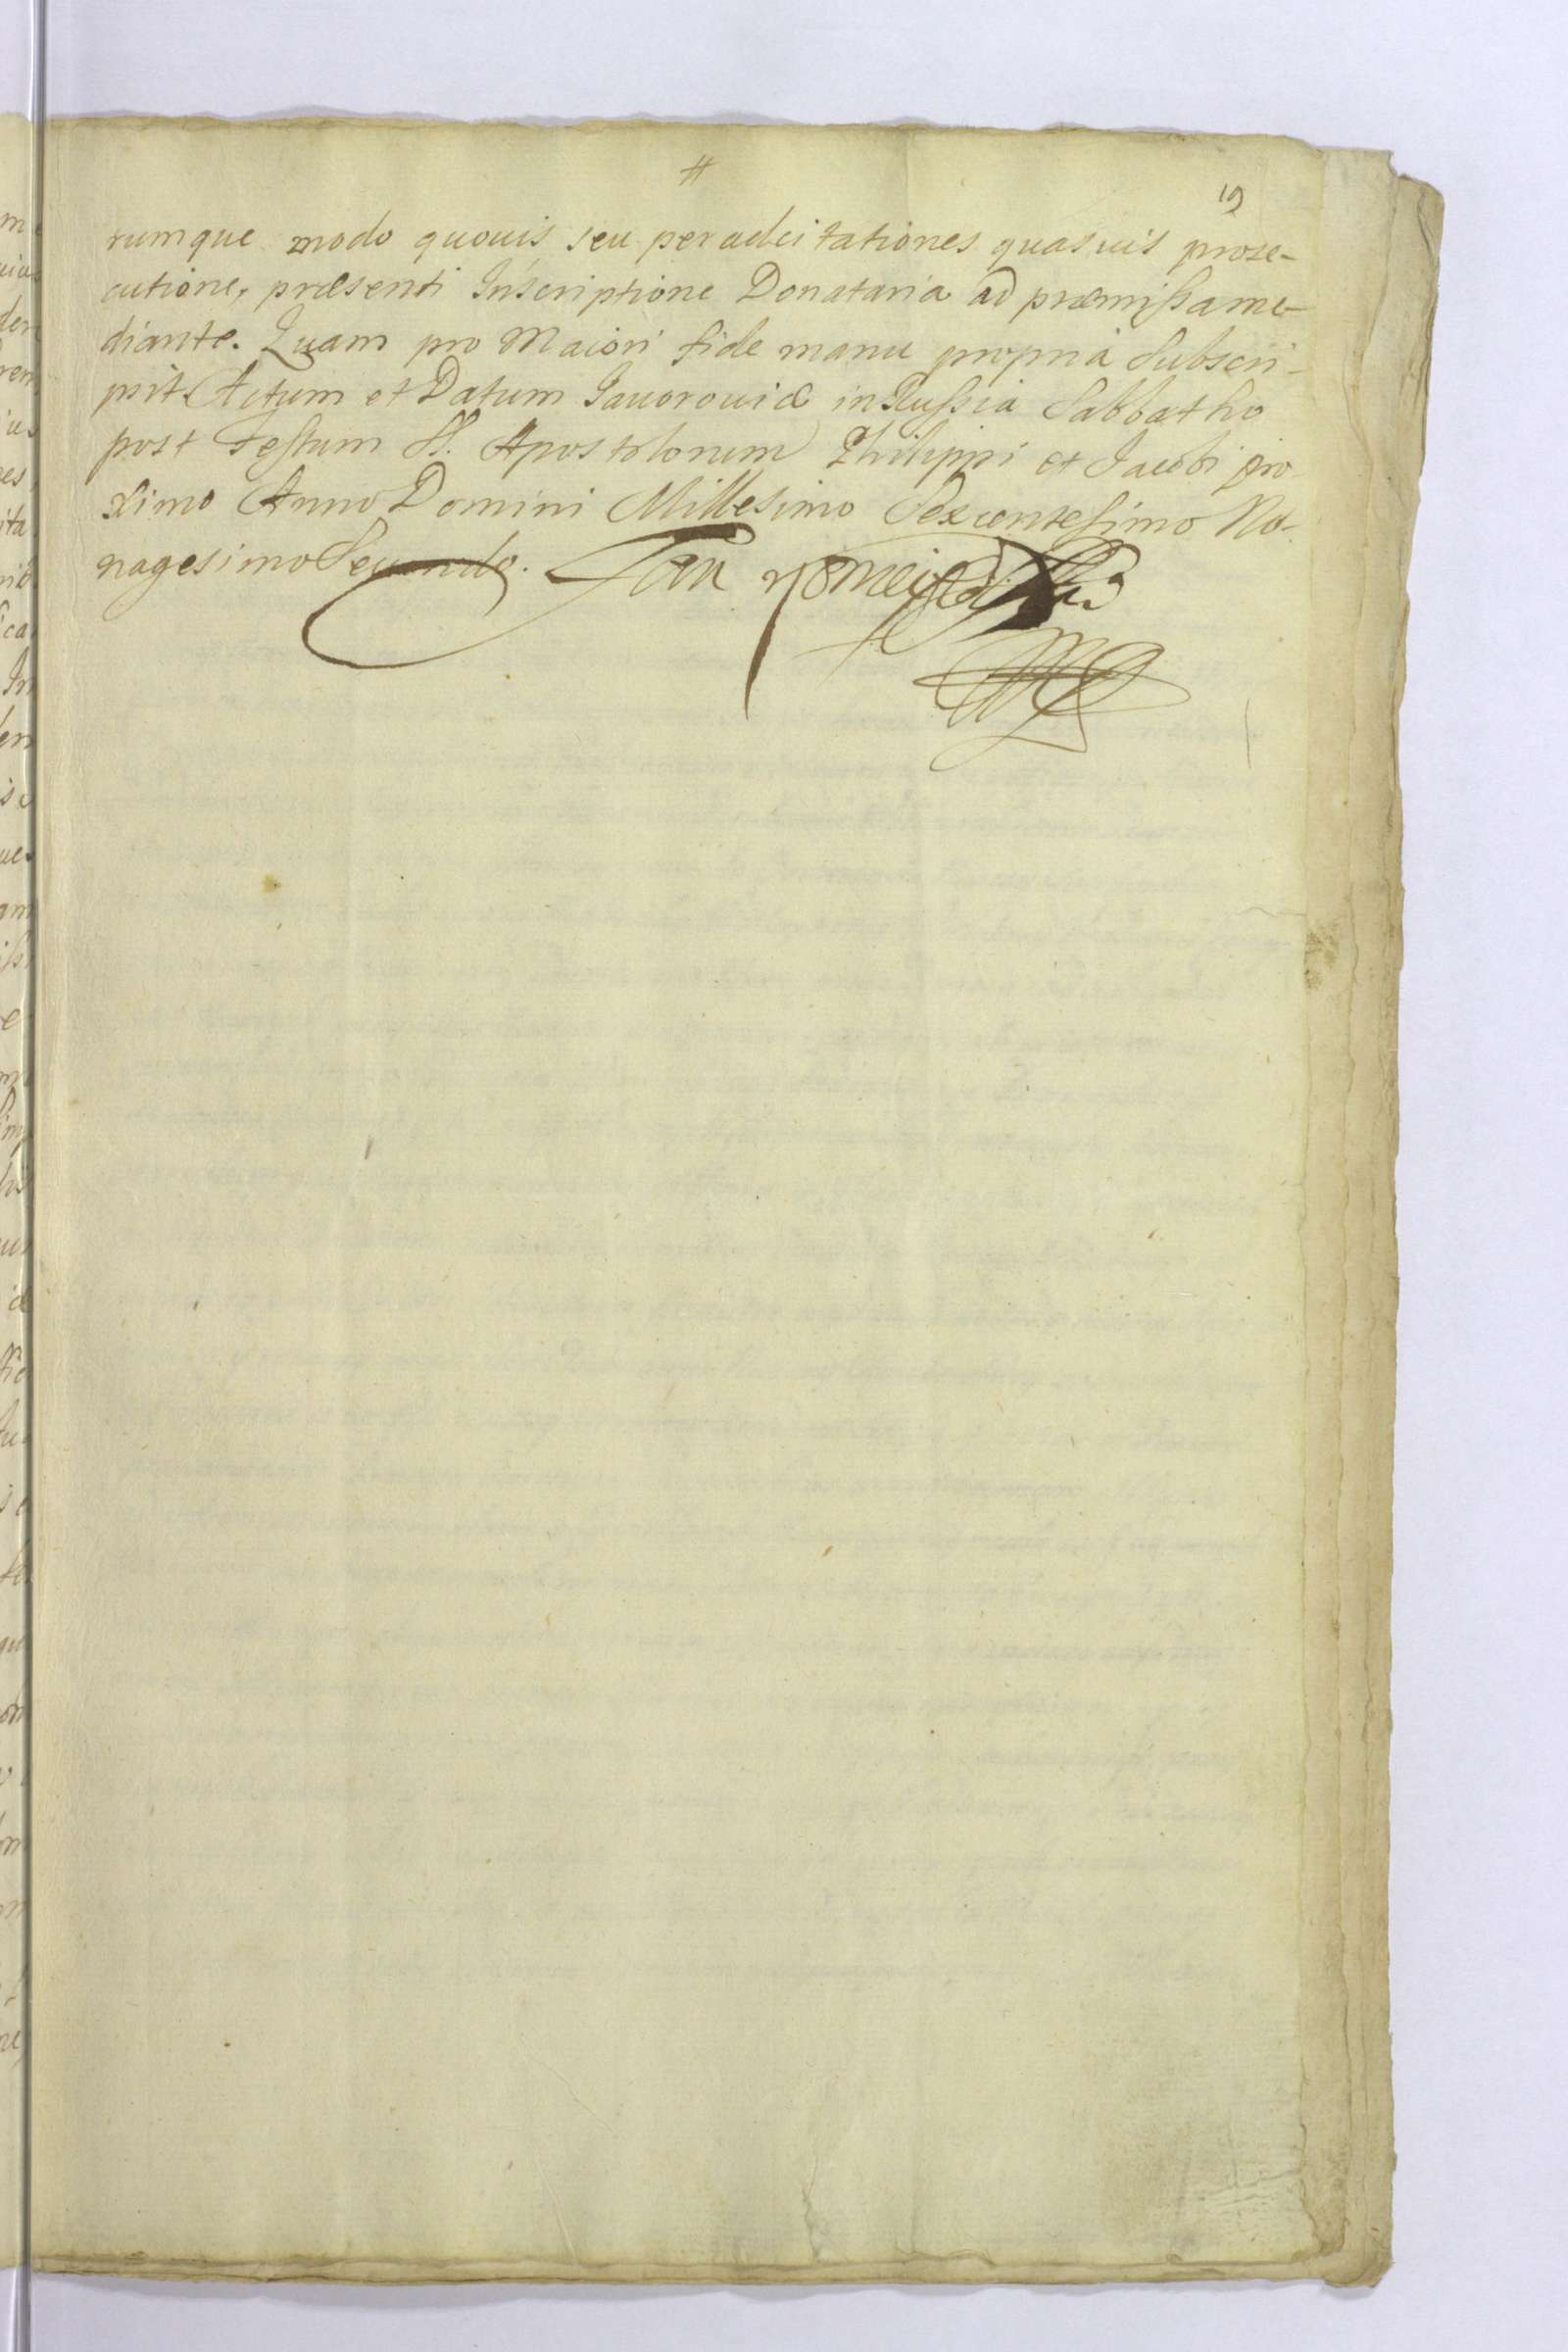 #
19
rumque modo quouis seu per adcitationes quasuis prose-
cutione, præsenti Inscriptione Donataria ad præmissa me-
diante. Quam pro Maiori fide manu propria Subscri-
psit. Actum et Datum Jauorouiæ in Russia Sabbatho
post Festum SS. Apostolorum Philippi et Jacobi pro-
ximo Anno Domini Millesimo Sexcentesimo No-
nagesimo Secundo. Jan